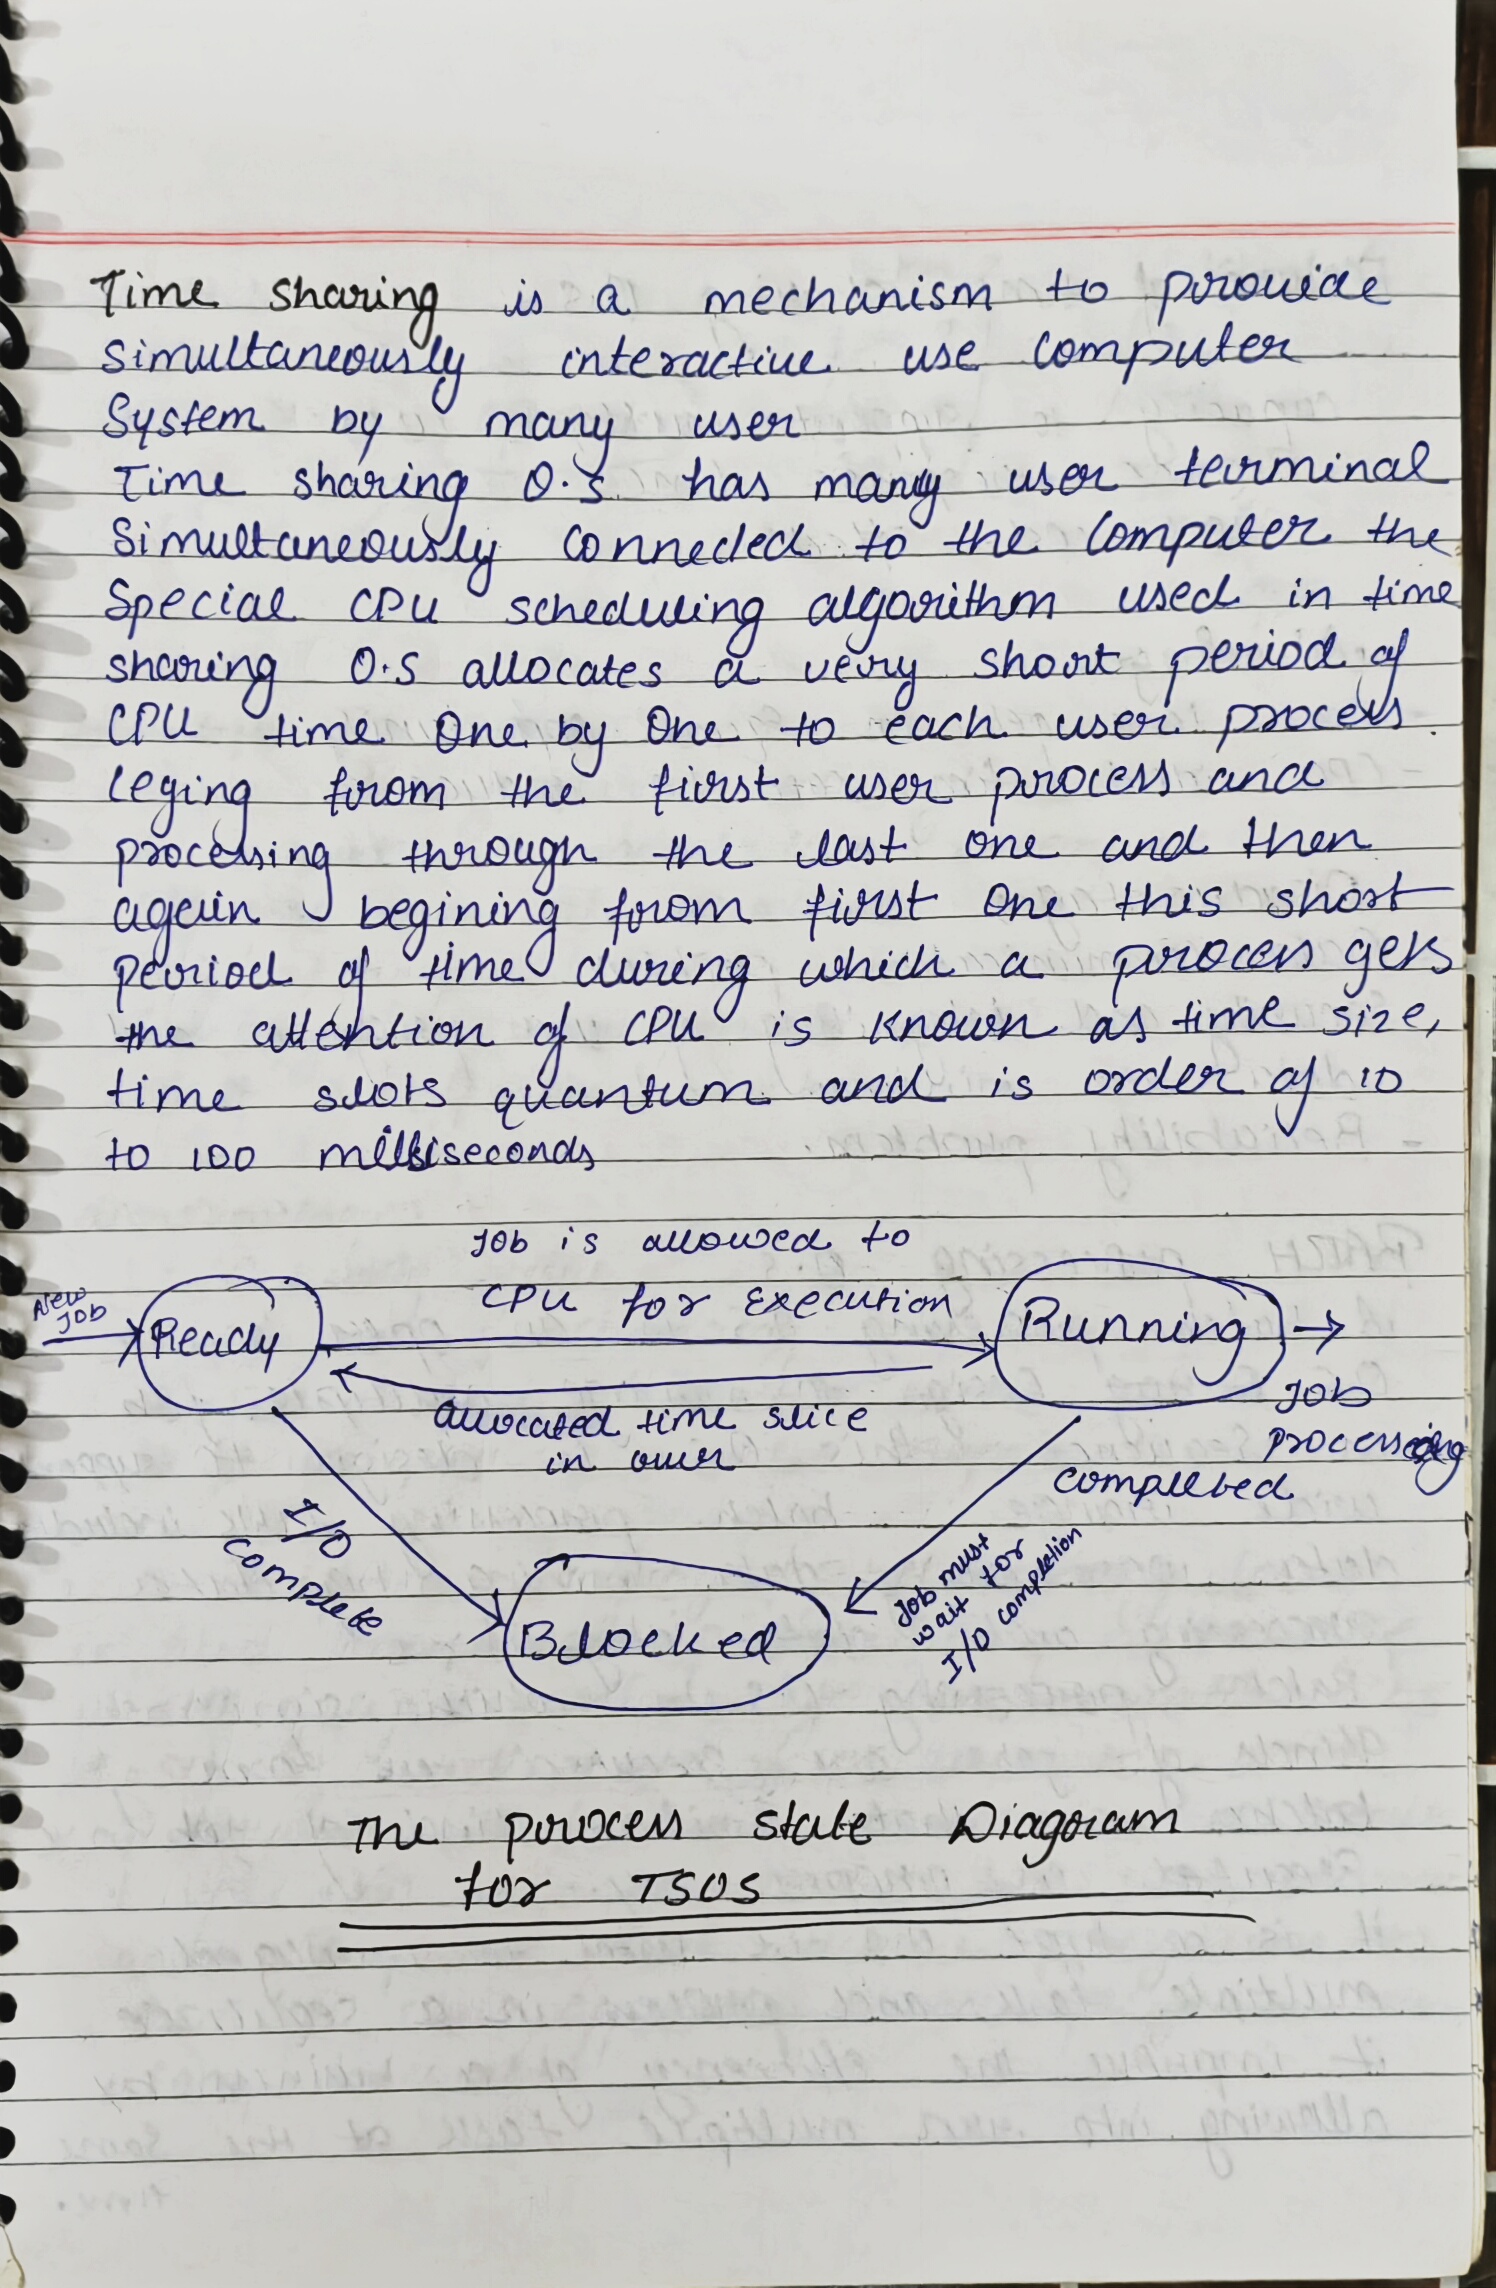 Time sharing is a mechanism to provide
Simultaneously interactive use computer
System by many user
Time sharing O.S has many user terminal
Simultaneously connected to the computer the
Special CPU scheduling algorithm used in time
sharing O.S allocates a very short period of
CPU time One by One to each user process.
leging from the first user process and
processing through the last one and then
again begining from first one this short
period of time during which a process gets
the attention of CPU is known as time size,
time slots quantum and is order of 10
to 100 milliseconds
Job is allowed to
CPU for Execution
New
Job
Ready
Running
allocated time slice
in over
Job
processing
completed
I/O
complete
Job must
wait for
I/O completion
Blocked
The process state Diagram
for TSOS